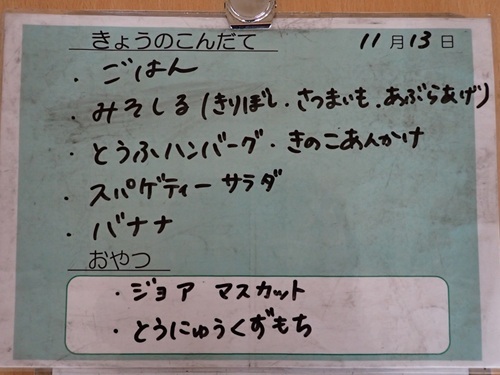 きょうのこんだて 11月13日
・ごはん
・みそしる(きりぼし・さつまいも・あぶらあげ)
・とうふハンバーグ・きのこあんかけ
・スパゲティーサラダ
・バナナ
おやつ
・ジョア マスカット
・とうにゅうくずもち